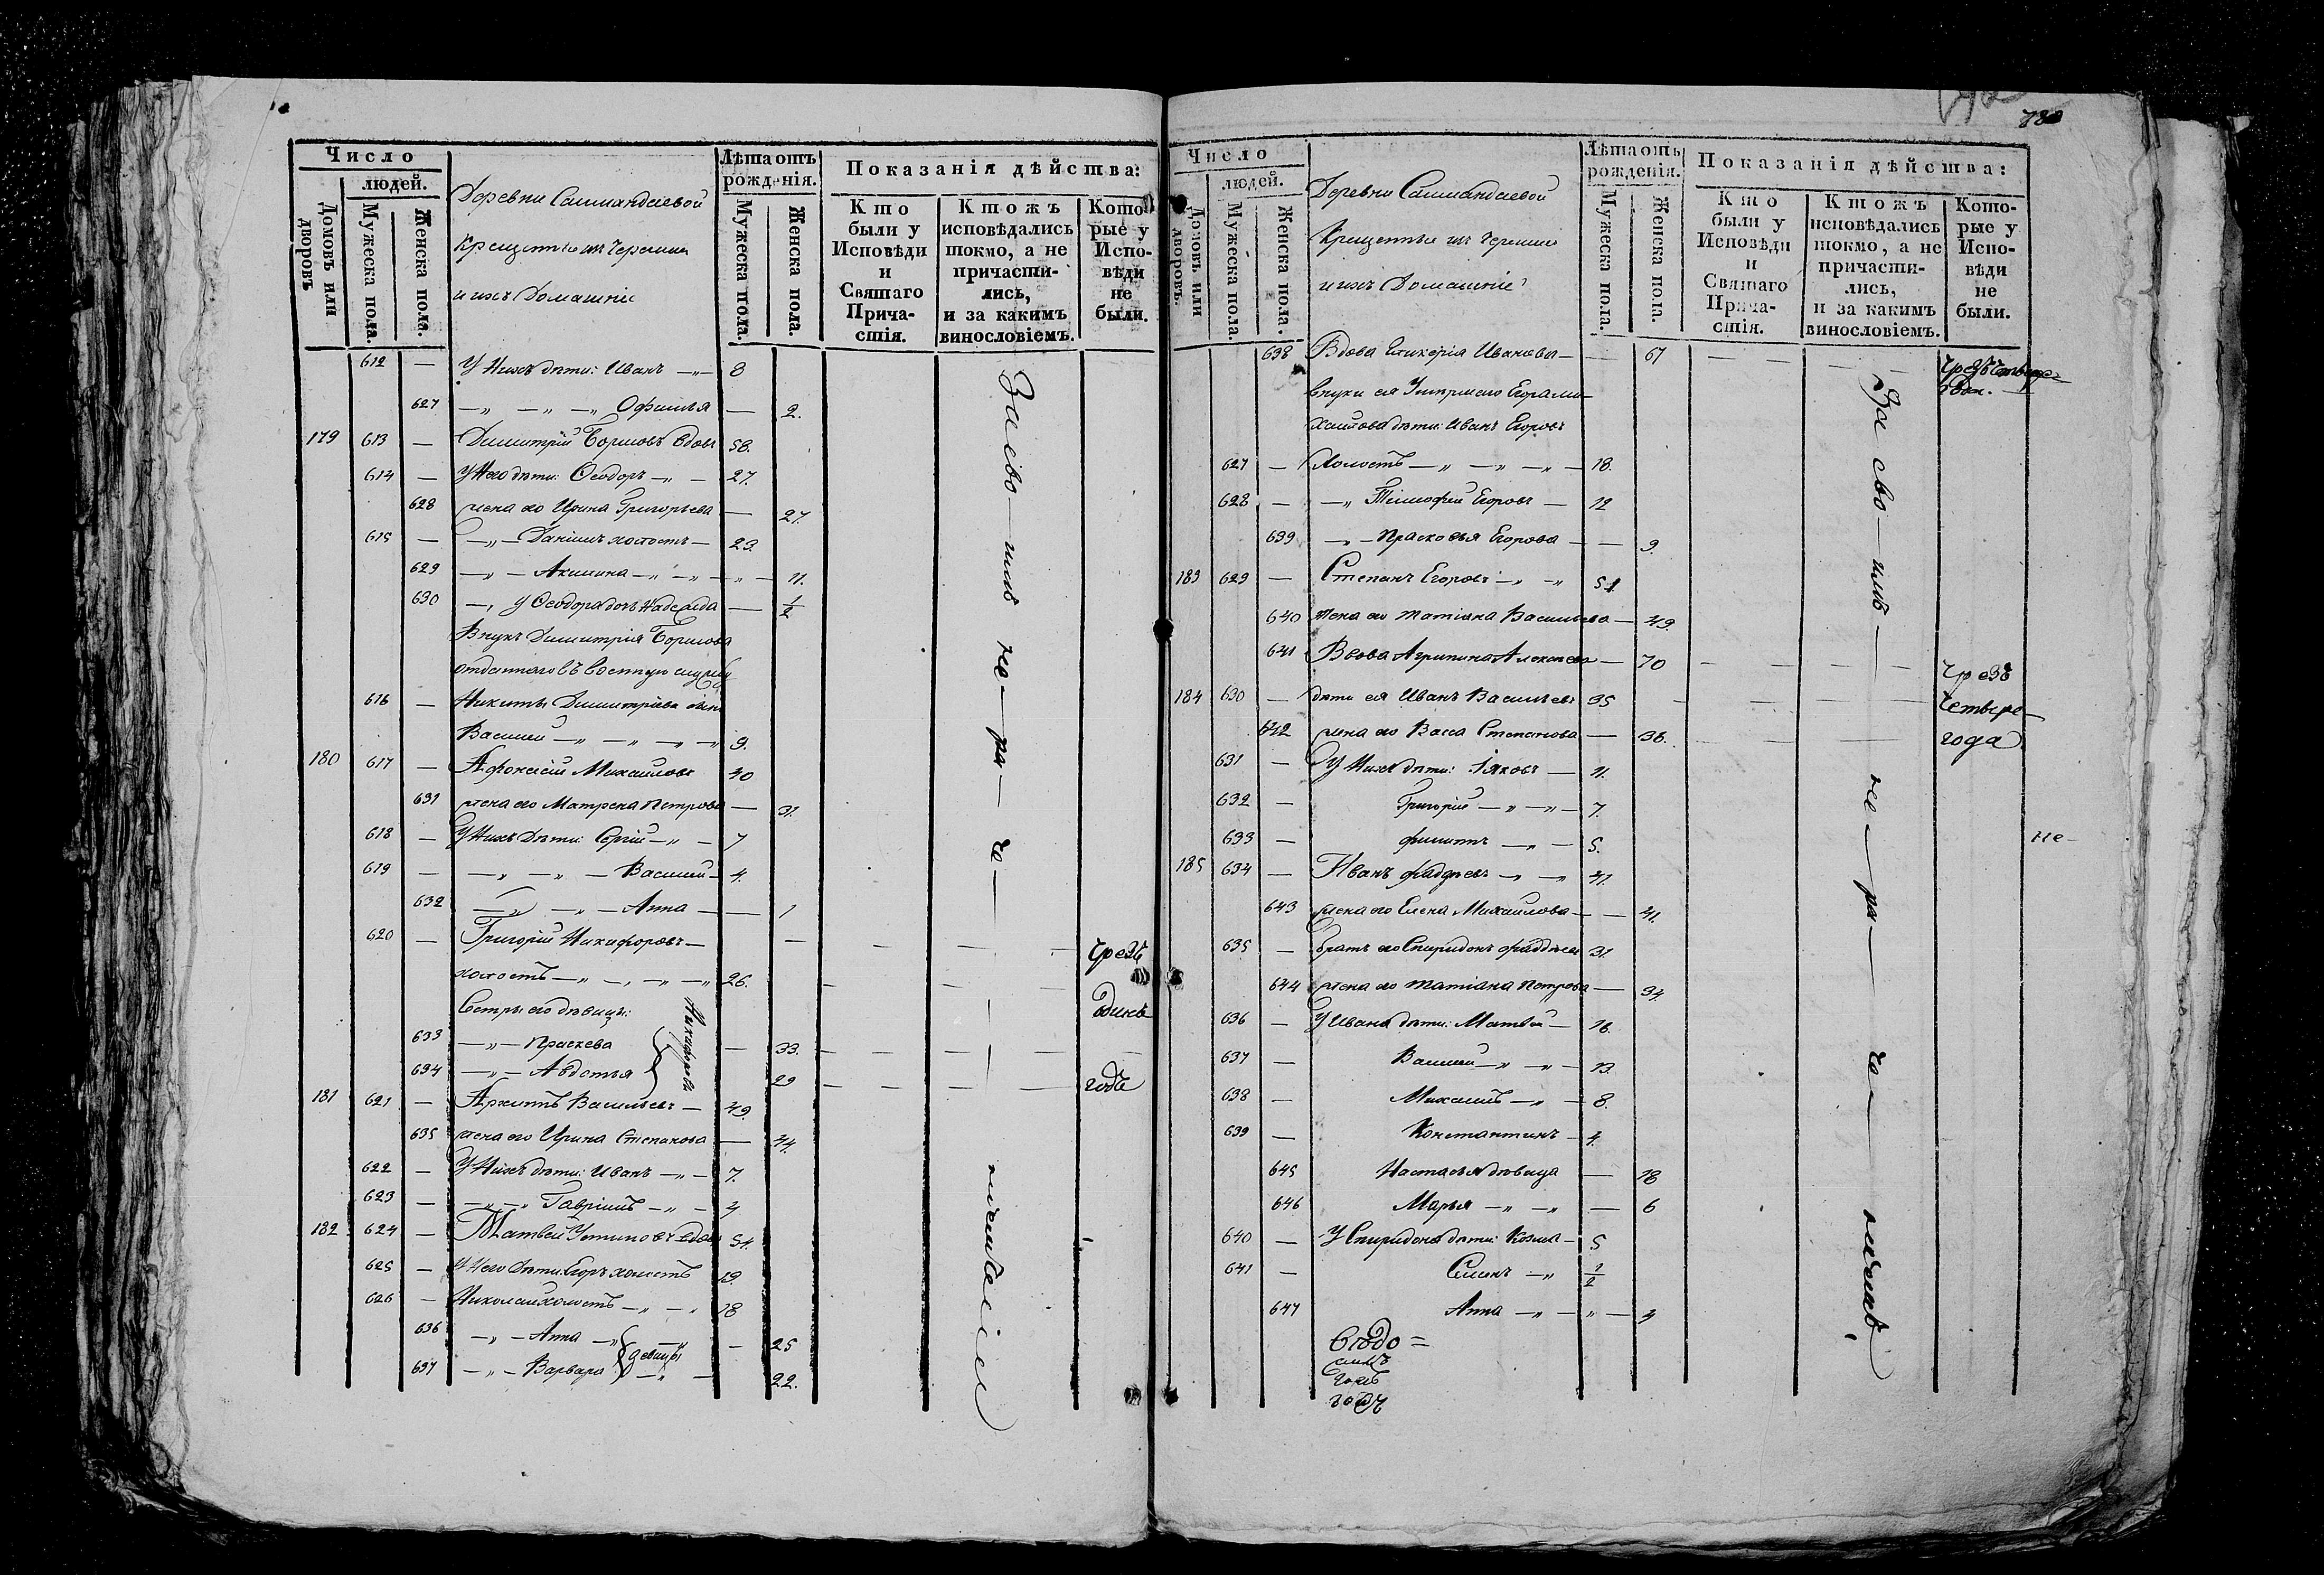 Число
людей.
Домовъ или дворовъ
Мужеска пола.
Женска пола.
Деревни Салмандаевой
Крещеные изъ Черемисъ
и ихъ Домашніе
Лѣта отъ рожденія.
Мужеска пола.
Женска пола.
Показанія дѣйства:
Кто были у Исповѣди и Святаго Прича-стія.
Ктожъ исповѣдались токмо, а не причасти-лись, и за какимъ винословіемъ.
Кото-рые у Испо-вѣди не были.
612 — У Нихъ дѣти: Иванъ —„— 8
627 —„ —„ —„ Офимья — 2.
179 613 — Димитрій Борисовъ вдовъ 58.
614 — У Него дѣти: Ѳеодоръ —„ — 27.
628 жена его Ирина Григорьева — 27.
615 — —„— Даніилъ холостъ — 23.
629 —„— Акилина —„ —„ —„ — 11.
630 —, у Ѳеодора дочь Надежда — 1/2
Внукъ Димитрія Борисова
отданнаго въ военную службу
616 — Никиты Димитріева сынъ
Василій —„ —„ —„ —„ 9.
180 617 — Афонасій Михайловъ 40
631 жена его Матрена Петрова — 31.
618 — У Нихъ Дѣти: Сергій —„ — 7
619 — —„ —„ — Василій — 4.
632 —„ —„ — Анна — — 1
620 — Григорій Никифоровъ —
холостъ —„ —, —„ —„ 26.
Сестры его дѣвицы:
633 —„— Праскева — 33.
634 —„— Авдотья 29
Никифоровы
Чрезъ
одинъ
годъ
181 621 — Архипъ Васильевъ — 49.
635 жена его Ирина Степанова — 44.
622 — У Нихъ дѣти: Иванъ —„ — 7.
623 — —„ —„ Гавріилъ —„ — 4
182 624 — Матвей Устиновъ вдовъ 51.
625 — У Него Дѣти: Егоръ холостъ 19.
626 — Николай холостъ —„ —„ 18
636 —„ — Анна —„ —„ — 25
637 —„ — Варвара —„ — 22.
девицы
За сво имъ не ра че ниемъ
780
Число
людей.
Домовъ или дворовъ.
Мужеска пола.
Женска пола.
Деревни Салмандаевой
Крещеные изъ Черемисъ
и ихъ Домашніе
Лѣта отъ рожденія.
Мужеска пола.
Женска пола.
Показанія дѣйства:
Кто были у Исповѣди и Святаго Прича-стія.
Ктожъ исповѣдались токмо, а не причасти-лись, и за какимъ винословіемъ.
Кото-рые у Испо-вѣди не были.
638 Вдова Гликерія Иванова — — 67
внуки ея Умершаго Егора Ми-
хайлова дѣти: Иванъ Егоровъ
627 — холостъ —„ —„ —„ — 18.
628 — —„ Тимофей Егоровъ — 12
639 —„ — Прасковья Егорова — — 9.
183 629 — Степанъ Егоровъ —„ —„ 51
640 жена его Татіана Васильева — 49.
641 Вдова Агрипина Алексѣева — 70
Чрезъ
четыре
года
184 630 — дѣти ея Иванъ Васильевъ 35
642 жена его Васса Степанова — 38.
631 — У Нихъ дѣти: Іяковъ — 11.
632 — Григорій —„ —„ — 7.
633 — Филипъ —„ — 5.
185 634 — Иванъ Фаддѣевъ —„ —„ 41.
643 жена его Елена Михайлова — — 41.
635 — братъ его Спиридонъ Фаддѣевъ 31.
644 жена его Татіана Петрова — 34.
636 — У Ивана дѣти: Матвѣй — 16.
637 — Василій —„ —„ — 13.
638 — Михаилъ —„ — 8.
639 — Константинъ — 4.
645 Настасья дѣвица — 18
646 Марья —„ —„ — 6
640 — У Спиридона дѣти: Козма — 5
641 — Семенъ —„ 1/2
647 Анна —„ —„ — 4
За сво имъ не ра че ниемъ
не-